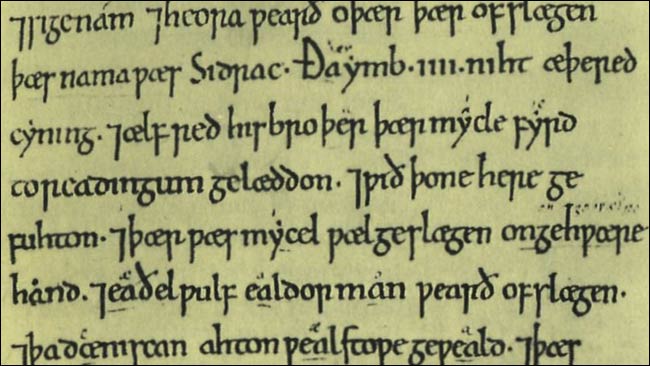 ⁊sige nam ⁊heora ƿearð oþær þær ofslægen
þæs nama ƿæs Sidrac. Ða ymb .iiii. niht æþered
cyning. ⁊ælfred his broþer þær mycle fyrd
to readingum gelæddon. ⁊ƿið þone here ge
fuhton. ⁊þær ƿæs mycel ƿæl geslægen on gehƿære
hand. ⁊eaðelƿulf ealdorman ƿearð ofslægen.
⁊þa dæniscan ahton ƿealstoƿe geƿeald. ⁊þær